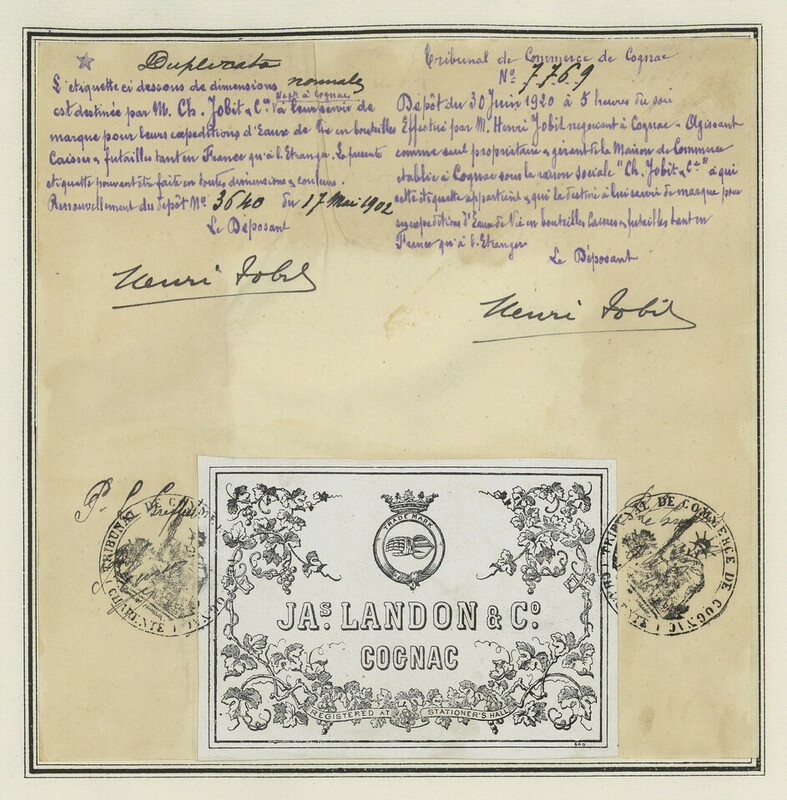 Duplicata
L'étiquette ci dessous de dimensions normales
Negt à Cognac
est destinée par M. Ch. Jobit & Cie à leur servir de
marque pour leurs expéditions d'Eaux de Vie en bouteilles
Caisses & futailles tant en France qu'à l'Etranger. La présente
étiquette pouvant être faite en toutes dimensions & couleurs.
Renouvellement du dépôt No 3640 du 17 Mai 1902
Le Déposant
Henri Jobit
Tribunal de Commerce de Cognac
No 7769
Dépôt du 30 Juin 1920 à 5 heures du soir
Effectué par M. Henri Jobit negociant à Cognac - Agissant
comme seul propriétaire & gérant de la Maison de Commerce
établie à Cognac sous la raison sociale "Ch. Jobit & Cie" à qui
cette étiquette appartient & qui la destine à lui servir de marque pour
ses expéditions d'Eaux de Vie en bouteilles Caisses & futailles tant en
France qu'à l'Etranger
Le Déposant
Henri Jobit
TRIBUNAL DE COMMERCE DE COGNAC
CHARENTE
TRADE MARK
JAS. LANDON & CO.
COGNAC
REGISTERED AT STATIONER'S HALL
TRIBUNAL DE COMMERCE DE COGNAC
CHARENTE